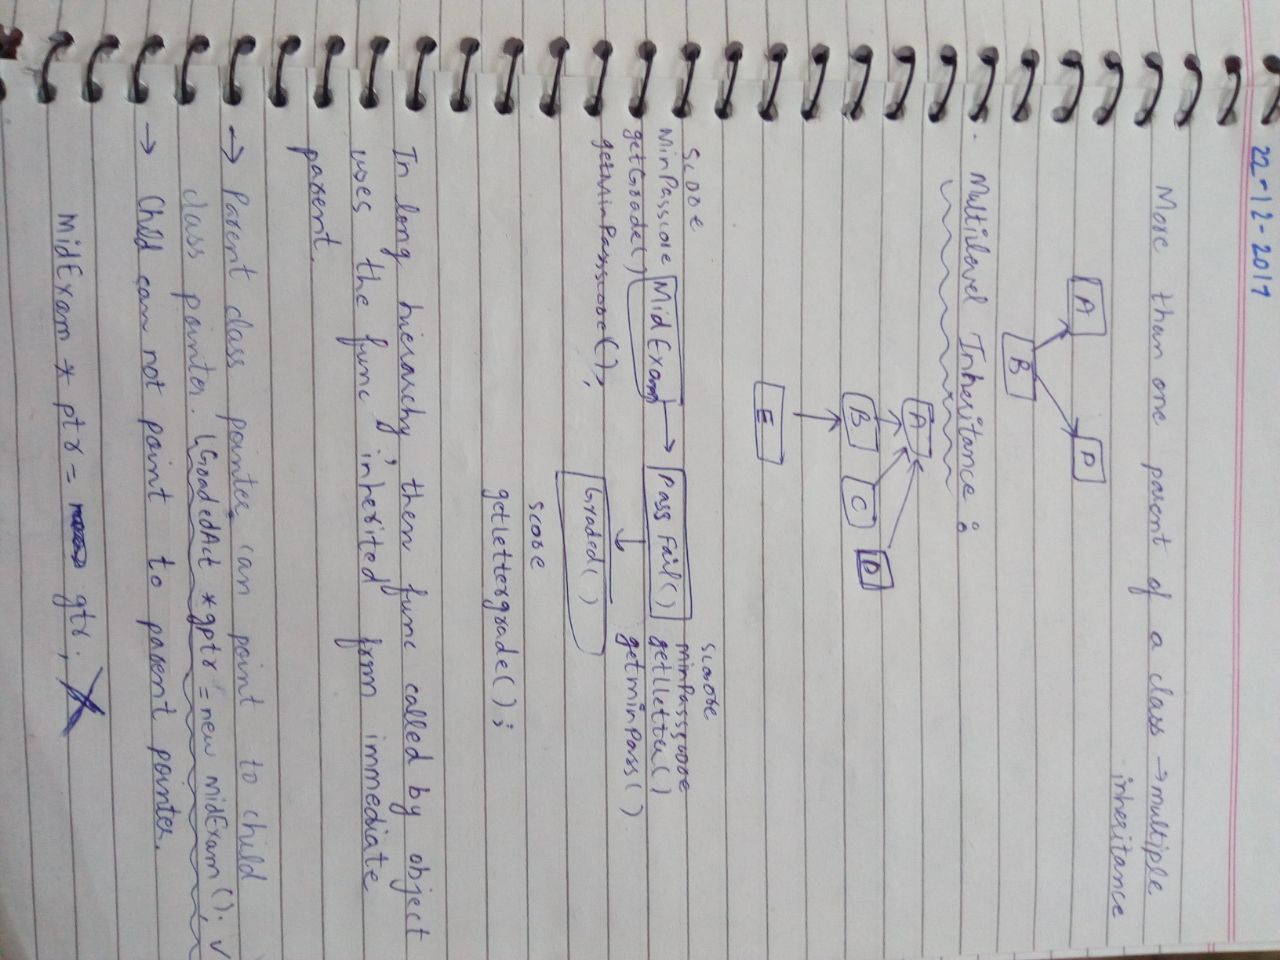 22-12-2017
More than one parent of a class → multiple
inheritance
A
P
B
Multilevel Inheritance :
A
B C D
E
Score
MinPasscore
getGrade()
getMinPassscore();
Mid Exam → Pass Fail()
Score
minPassscore
getLetter()
getminPass()
Graded()
Score
getLettergrade();
In long hierarchy, then func called by object
uses the func inherited form immediate
parent.
→ Parent class pointer can point to child
class pointer. GradedAct *gptr = new midExam(); ✓
→ Child can not point to parent pointer.
MidExam * ptr = gtr;